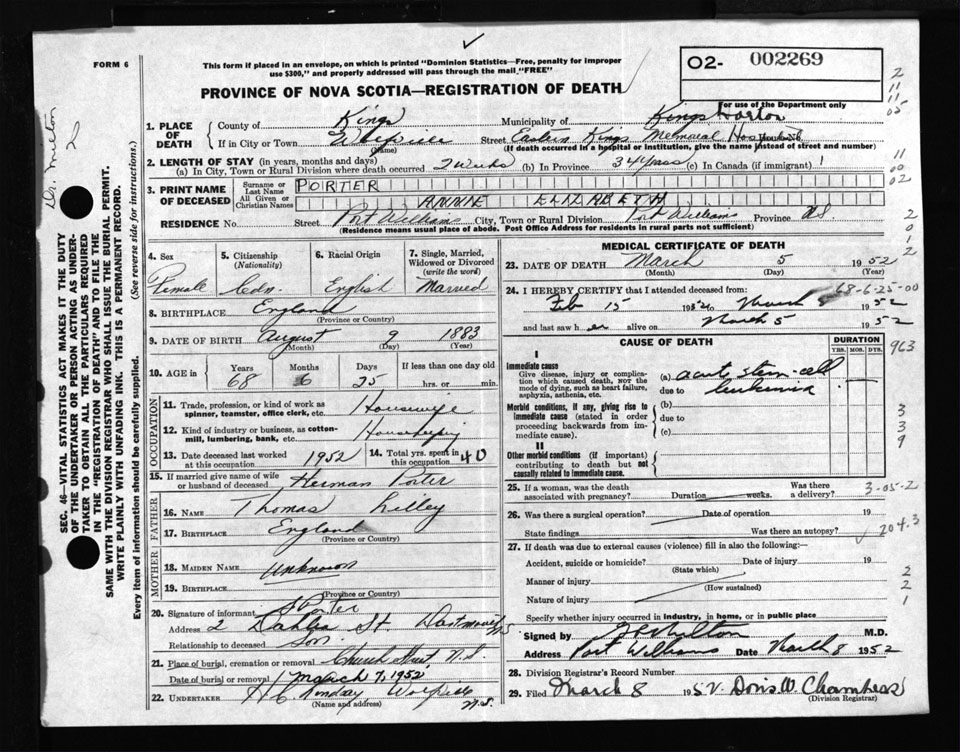 FORM 6
This form if placed in an envelope, on which is printed "Dominion Statistics—Free, penalty for improper
use $300," and properly addressed will pass through the mail "FREE"
O2- 002269
PROVINCE OF NOVA SCOTIA—REGISTRATION OF DEATH
For use of the Department only
1. PLACE OF DEATH
County of Kings Municipality of Kings Horton
If in City or Town Wolfville Street Eastern Kings Memorial Hos
(Name) (If death occurred in a hospital or institution, give the name instead of street and number)
2. LENGTH OF STAY (in years, months and days)
(a) In City, Town or Rural Division where death occurred 2 weeks (b) In Province 34 years (c) In Canada (if immigrant)
3. PRINT NAME OF DECEASED
Surname or Last Name PORTER
All Given or Christian Names ANNIE ELIZABETH
RESIDENCE No. Street Port Williams City, Town or Rural Division Port Williams Province NS
(Residence means usual place of abode. Post Office Address for residents in rural parts not sufficient)
4. Sex Female
5. Citizenship (Nationality) Cdn.
6. Racial Origin English
7. Single, Married, Widowed or Divorced (write the word) Married
8. BIRTHPLACE England
(Province or Country)
9. DATE OF BIRTH August 9 1883
(Month) (Day) (Year)
10. AGE in Years Months Days If less than one day old
68 6 25 hrs. or min.
OCCUPATION
11. Trade, profession, or kind of work as spinner, teamster, office clerk, etc. Housewife
12. Kind of industry or business, as cotton-mill, lumbering, bank, etc. Housekeeping
13. Date deceased last worked at this occupation 1952
14. Total yrs. spent in this occupation 40
15. If married give name of wife or husband of deceased Herman Porter
FATHER
16. NAME Thomas Lilley
17. BIRTHPLACE England
(Province or Country)
MOTHER
18. MAIDEN NAME Unknown
19. BIRTHPLACE
(Province or Country)
20. Signature of informant Porter
Address 2 Dahlia St. Dartmouth NS
Relationship to deceased Son
21. Place of burial, cremation or removal Church Street, N.S.
Date of burial or removal March 7, 1952
22. UNDERTAKER Wolfville N.S.
(Name and address)
MEDICAL CERTIFICATE OF DEATH
23. DATE OF DEATH March 5 1952
(Month) (Day) (Year)
24. I HEREBY CERTIFY that I attended deceased from: 68-6-25-00
Feb 15 1952 to March 5 1952
and last saw her alive on March 5 1952
CAUSE OF DEATH
DURATION
YRS. MOS. DYS.
I
Immediate cause
Give disease, injury or complication which caused death, not the mode of dying, such as heart failure, asphyxia, asthenia, etc.
(a) acute stem-cell
due to leukemia
Morbid conditions, if any, giving rise to immediate cause (stated in order proceeding backwards from immediate cause).
(b)
due to
(c)
II
Other morbid conditions (if important) contributing to death but not causally related to immediate cause.
25. If a woman, was the death associated with pregnancy? Duration weeks. Was there a delivery? 3-05-2
26. Was there a surgical operation? Date of operation 19
State findings Was there an autopsy? 204.3
27. If death was due to external causes (violence) fill in also the following:—
Accident, suicide or homicide? Date of injury 19
(State which)
Manner of injury
(How sustained)
Nature of injury
Specify whether injury occurred in industry, in home, or in public place
Signed by M.D.
Address Port Williams Date March 8 1952
28. Division Registrar's Record Number
29. Filed March 8 1952 Doris W. Chambers
(Division Registrar)
SEC. 46—VITAL STATISTICS ACT MAKES IT THE DUTY
OF THE UNDERTAKER OR PERSON ACTING AS UNDER-
TAKER TO OBTAIN ALL THE PARTICULARS REQUIRED
IN THE "REGISTRATION OF DEATH" AND TO FILE THE
SAME WITH THE DIVISION REGISTRAR WHO SHALL ISSUE THE BURIAL PERMIT.
WRITE PLAINLY WITH UNFADING INK. THIS IS A PERMANENT RECORD.
Every item of information should be carefully supplied. (See reverse side for instructions.)
2
11
11
05
11
00
02
2
0
1
2
963
3
3
9
2
2
1